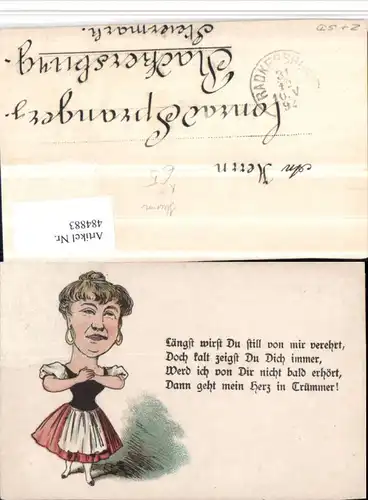 An Herrn
Conrad Spranger,
Radkersburg.
Steiermark.
RADKERSBURG
Artikel Nr.
484883
Längst wirst Du still von mir verehrt,
Doch kalt zeigst Du Dich immer,
Werd ich von Dir nicht bald erhört,
Dann geht mein Herz in Trümmer!